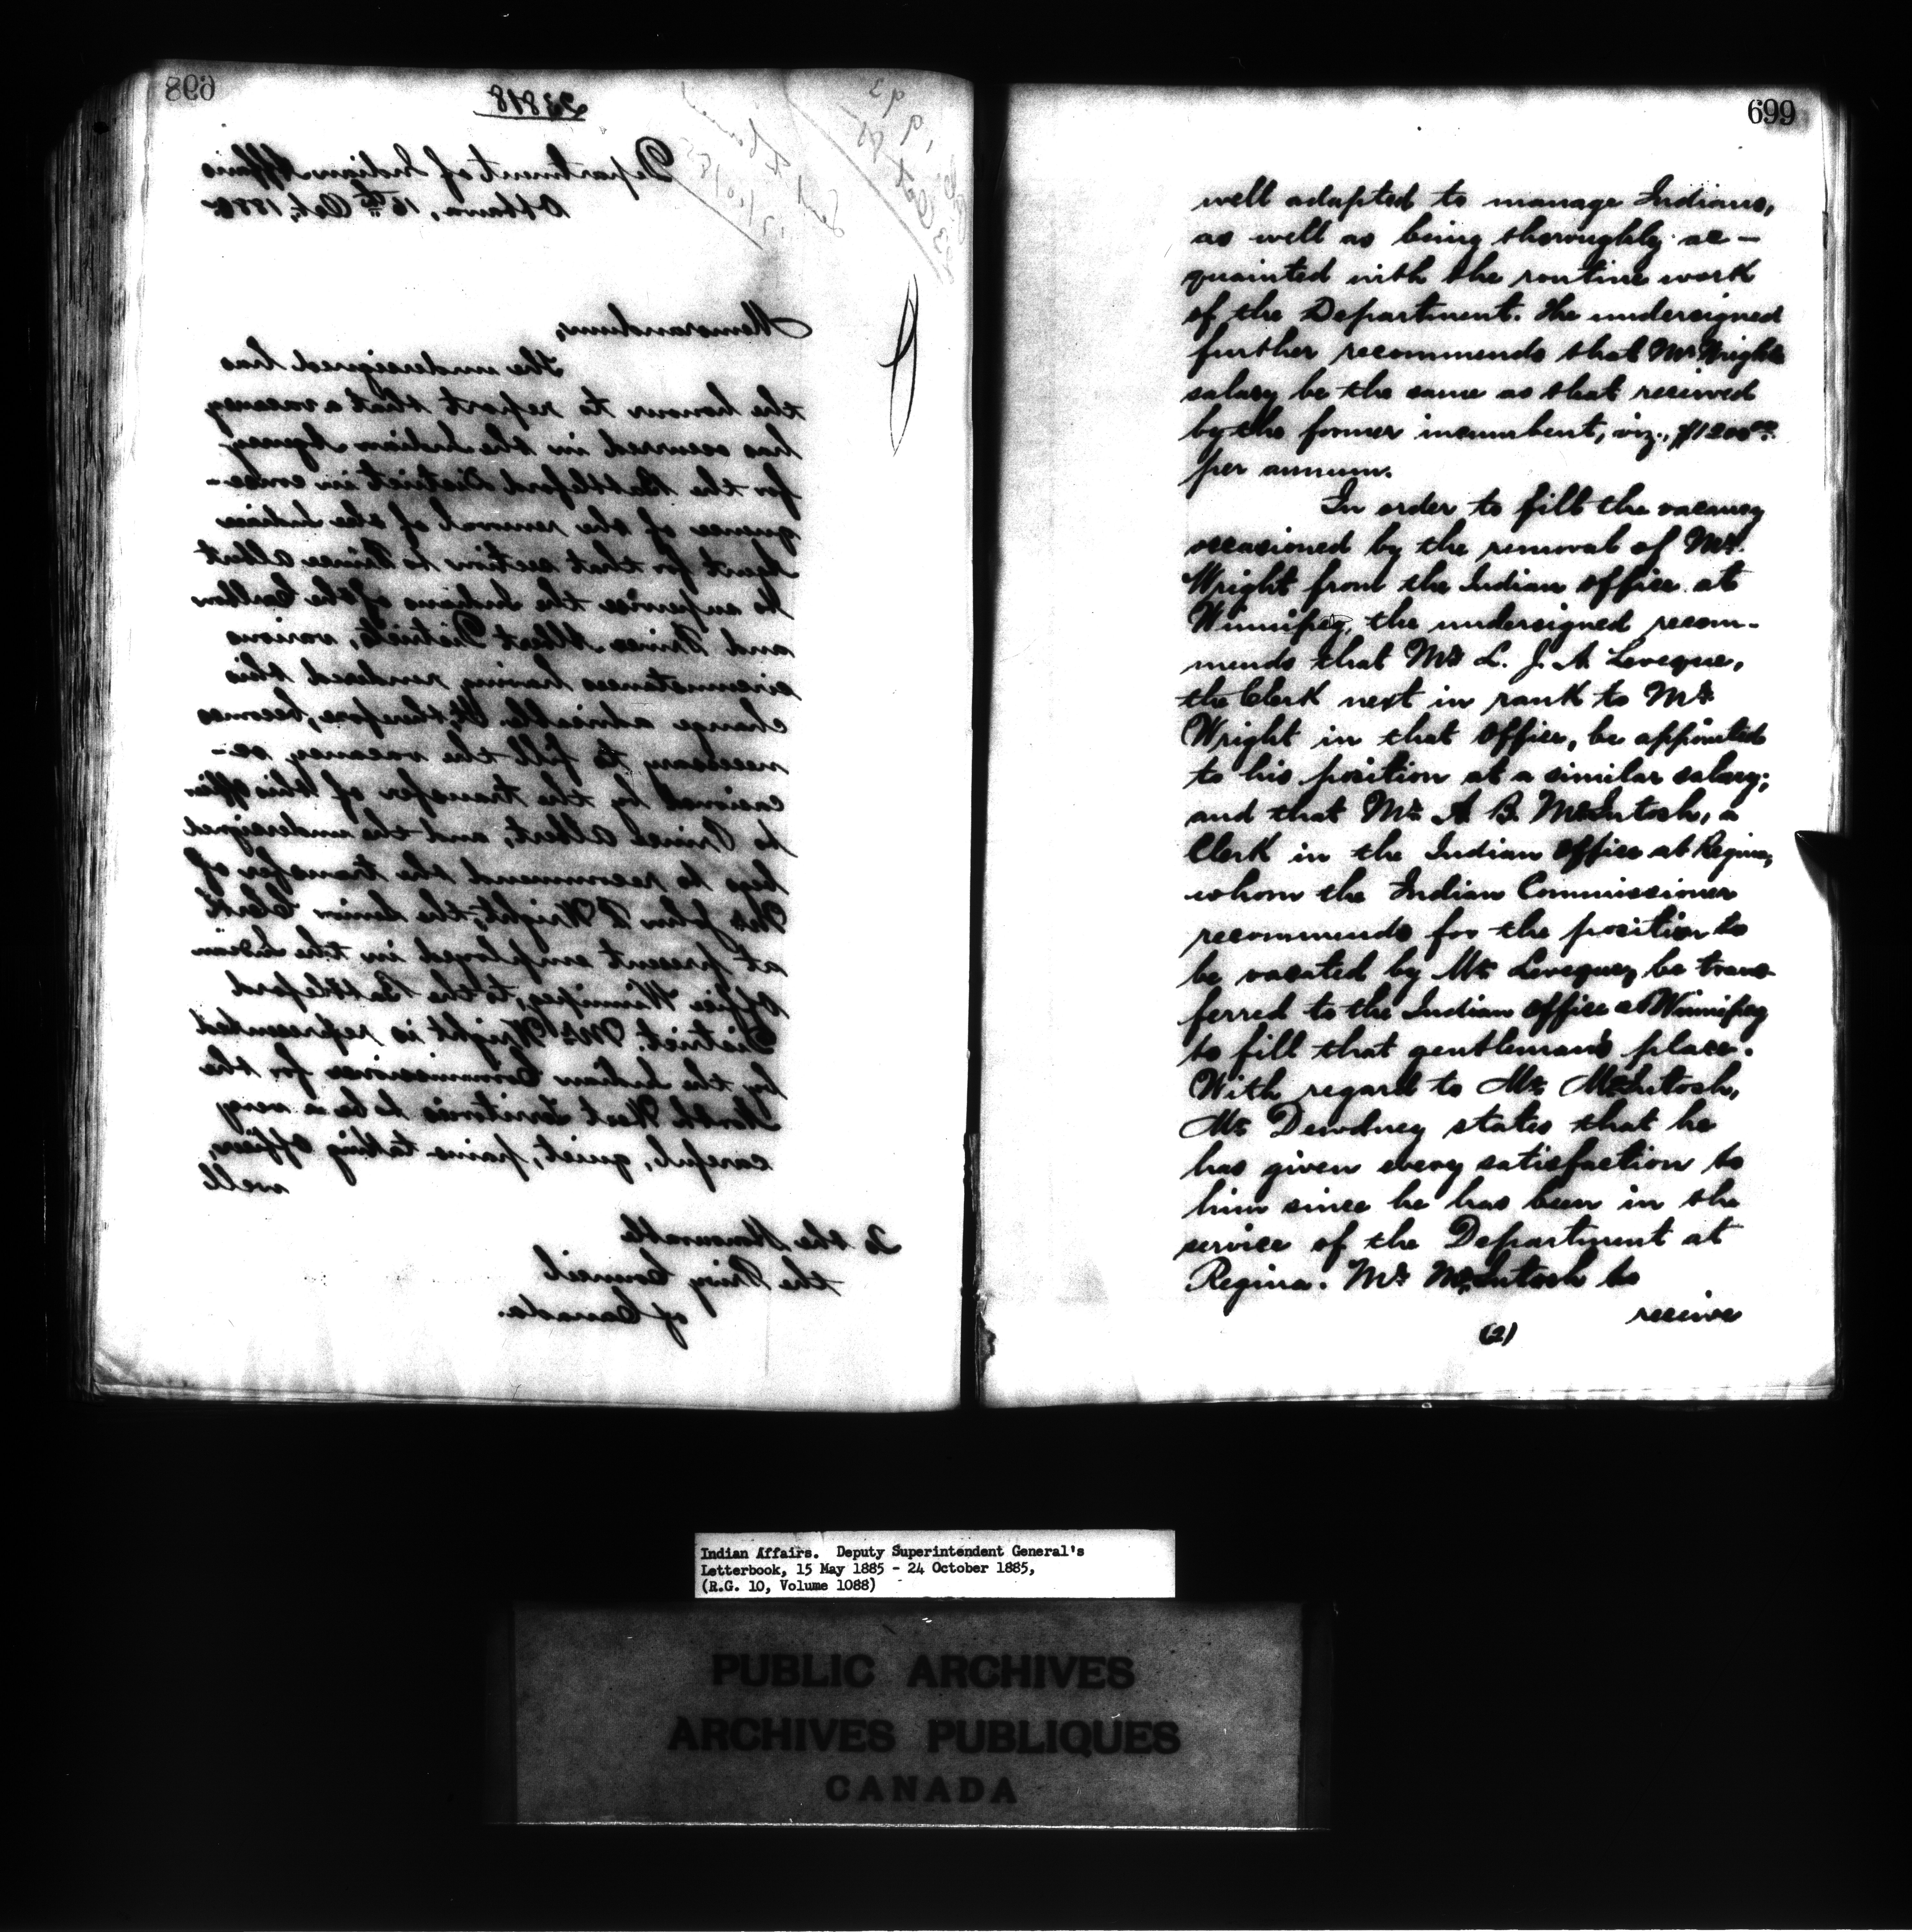 698
23818
Department of Indian Affairs
Ottawa, 16th Oct, 1885
Memorandum,
The undersigned has
the honour to report that a vacancy
has occurred in the Indian Agency
for the Battleford District in conse-
quence of the removal of the Indian
Agent for that section to Prince Albert
to supervise the Indians of the Carlton
and Prince Albert Districts, various
circumstances having rendered this
change advisable. It, therefore, becomes
necessary to fill the vacancy oc-
casioned by the transfer of this officer
to Prince Albert, and the undersigned
begs to recommend the transfer of
Mr John Wright, the Senior Clerk
at present employed in the Indian
Office Winnipeg, to the Battleford
District. Mr Wright is represented
by the Indian Commissioner for the
North West Territories to be a very
careful, quiet, pains taking officer,
well
To the Honourable
the Privy Council
of Canada.
699
well adapted to manage Indians,
as well as being thoroughly ac-
quainted with the routine work
of the Department. The undersigned
further recommends that Mr Wright's
salary be the same as that received
by the former incumbent, viz., $1200.00
per annum.
In order to fill the vacancy
occasioned by the removal of Mr.
Wright from the Indian Office at
Winnipeg, the undersigned recom-
mends that Mr L. J. A. Leveque,
the Clerk next in rank to Mr
Wright in that Office, be appointed
to his position at a similar salary;
and that Mr A. B. McIntosh, a
Clerk in the Indian Office at Regina,
whom the Indian Commissioner
recommends for the position to
be vacated by Mr Leveque, be trans-
ferred to the Indian Office at Winnipeg
to fill that gentleman's place.
With regard to Mr McIntosh,
Mr Dewdney states that he
has given every satisfaction to
him since he has been in the
service of the Department at
Regina. Mr McIntosh to
receive
(2)
Indian Affairs. Deputy Superintendent General's
Letterbook, 15 May 1885 - 24 October 1885,
(R.G. 10, Volume 1088)
PUBLIC ARCHIVES
ARCHIVES PUBLIQUES
CANADA